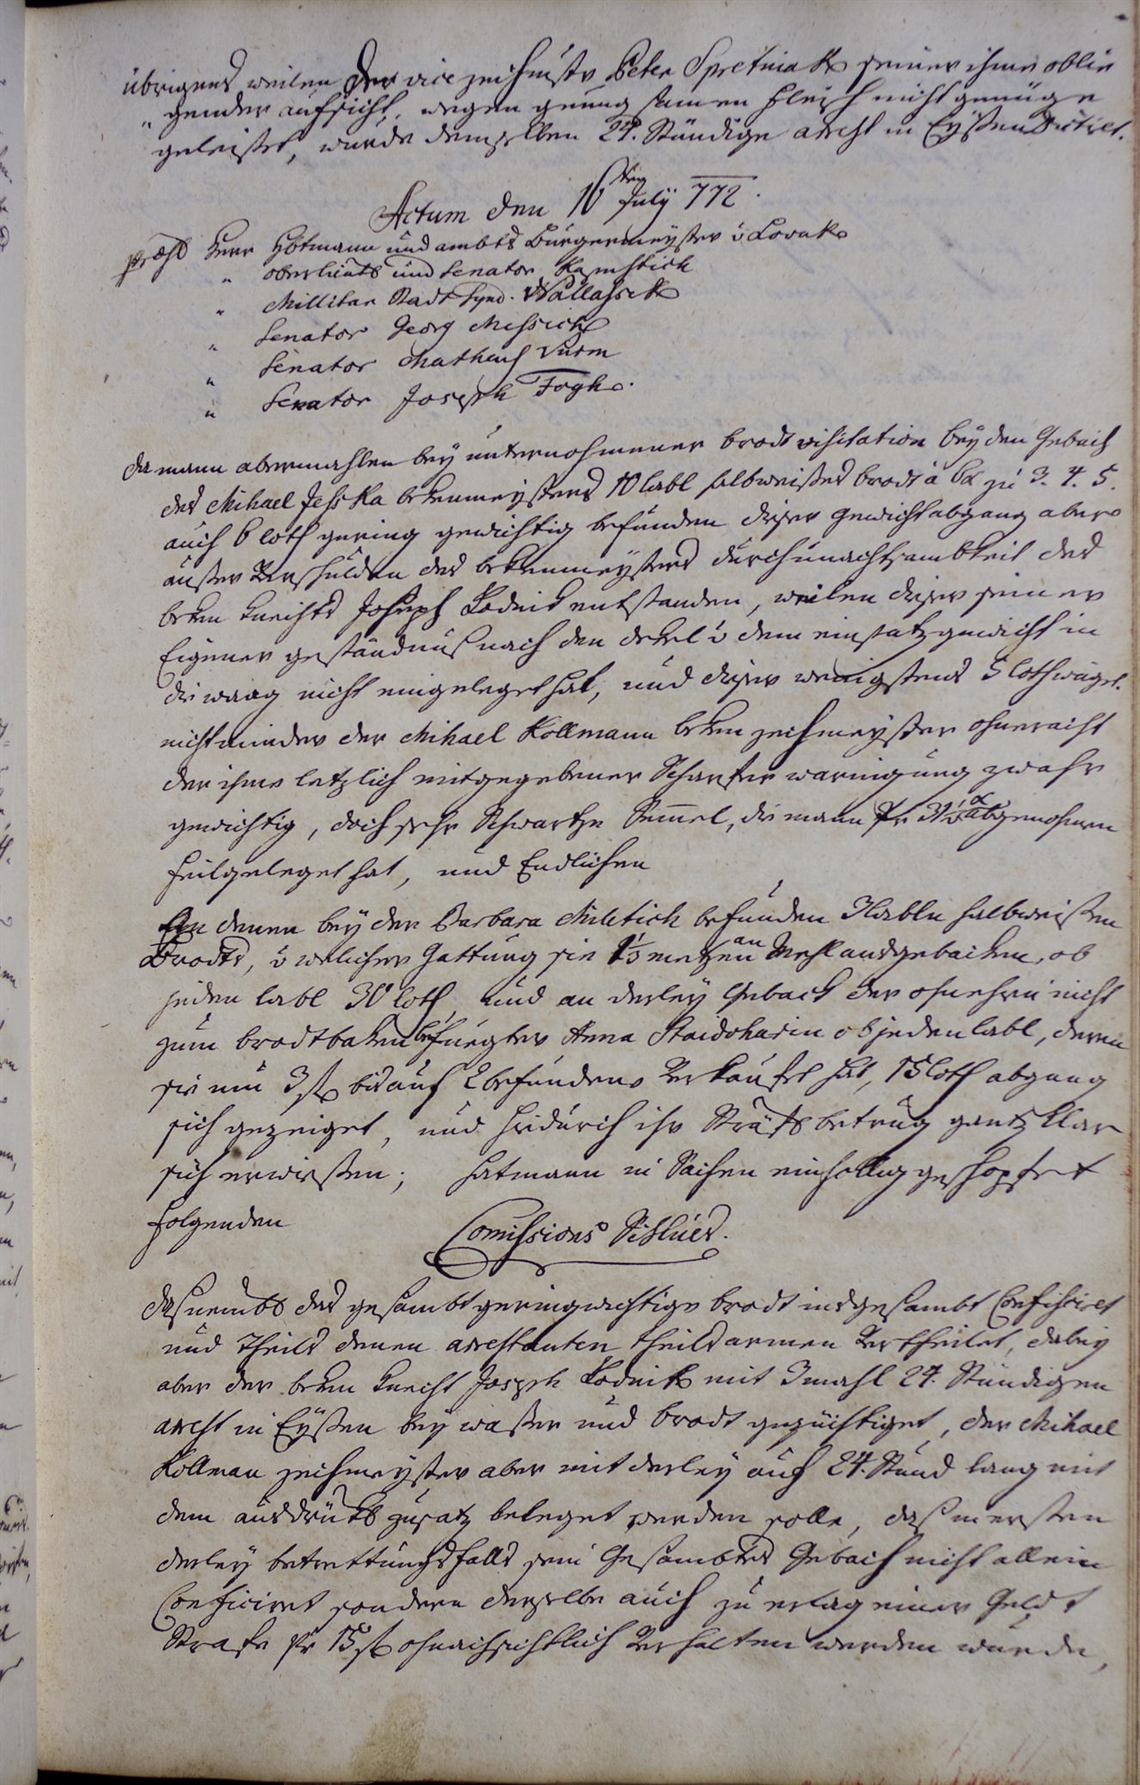 übrigens weilen der vice zechmster Peter Spretniak seiner ihme oblie
" gender aufsicht, wegen genug samen Fleisch nicht genüge
geleistet, wurde demselben 24. Stündige arest in Eyßen dictirt.
Actum den 16ten July 772.
Præss Herr Hbtmann und ambts Burgermeyster v Lovak
" oberlieuts und Senator Kamstich
" Militar Stadt Synd. Wallassek
" Senator Georg Messich
" Senator Matheus Turm
" Senator Joseph Fogh.
da mann abermahlen bey unternohmener brodt visitation bey den Gebäch
des Mihael Jesska bekenmeysters 10 labl halbweißes brodt à 6x zu 3. 4. 5.
auch 6 loth gering gewichtig befunden dieser Gewichtabgang aber
außer Verschulden des bekenmeysters durch unachtsambkeit des
beken knechts Joseph Rodnik entstanden, weilen dieser seiner
Eigener geständnus nach den v dem einsatzgewicht in
die waag nicht eingeleget hat, und dieser wenigstens 5 loth wäget.
nicht minder der Mihael Kollmann beken zechmeyster ohneracht
der ihme letzlich mitgegebener scharfer warnigung zwahr
gewichtig, doch sehr schwartze Semel, die mann pr 31 x abgenohmen
feilgeleget hat, und Endlichen
An denen bey der Barbara Miletich befunden 3 labln halbweißen
Brodts, v welicher Gattung sie 1½ metzen an Mehl ausgebachen, ob
jeden labl 30 loth, und an derley Geback der ohnehin nicht
zum brodtbaken befuegter Anna Staidoharin ob jeden labl, deren
sie nur 3 st bis auf 2 befundene Verkaufet hat, 15 loth abgang
sich gezeiget, und hiedurch ihr Straff betrug gantz klar
sich erwießen; hat mann in Sachen einhellig geschopfet
folgenden Comissions Schlues.
Daß nembl das gesambt geringwichtige brodt insgesambt Confisciret
und theils denen arestanten theils armen Vertheilet, dabey
aber der beken knecht Joseph Rodnik mit 3mahl 24. Stündigen
arest in Eyßen bey waßer und brodt gezüchtiget, der Mihael
Kollman zechmeyster aber mit derley auf 24. Stund lang mit
dem ausdrükl zusatz beleget werden solle, daß in ersten
derley betrettungsfalls sein Gesambtes Gebäch nicht allein
Conficiret sondern derselbe auch zu erlag einer Geldt
Strafe pr 15 f ohnachsichtlich Verhalten werden wurde,